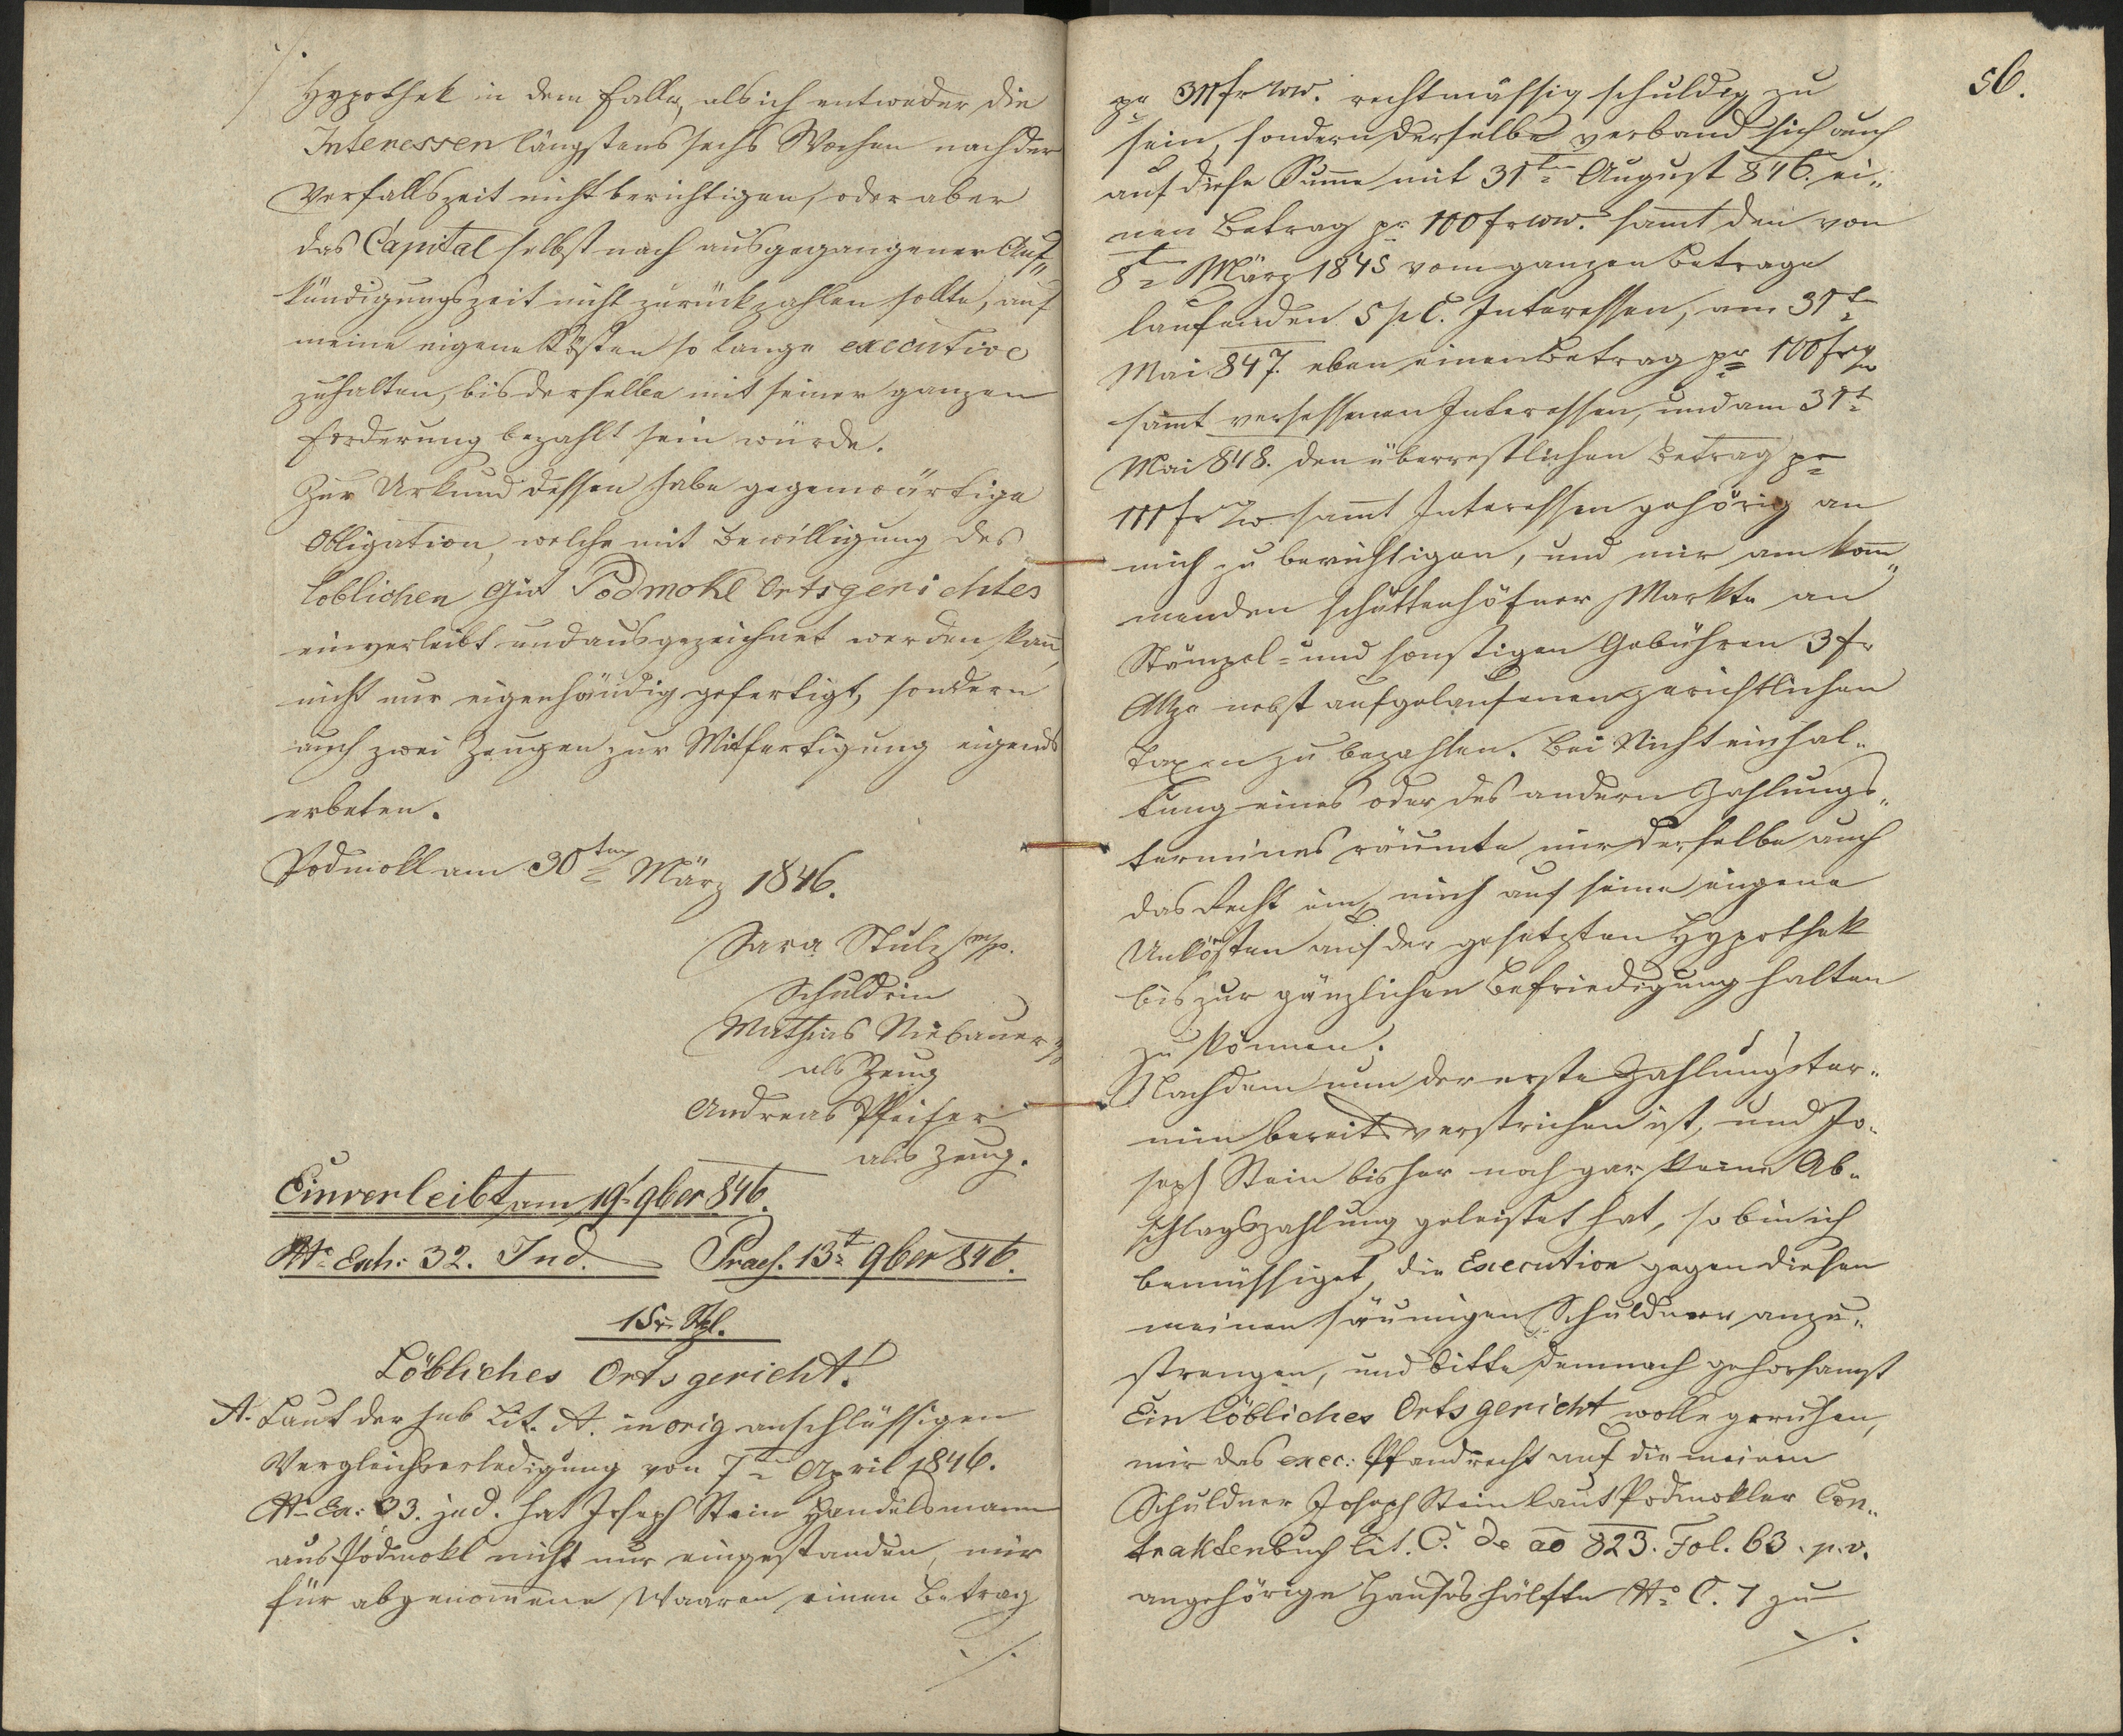 ./.
Hypothek in dem Falle, als ich entweder die
Interessen längstens sechs Wochen nach der
Verfallszeit nicht berichtigen, oder aber
das Capital selbst nach ausgegangener Auf„
kündigungszeit nicht zurückzahlen sollte, auf
meine eigene Kösten so lange executive
zuhalten, bis derselbe mit seiner ganzen
Forderung bezahlt sein würde.
Zur Urkund dessen habe gegenwärtige
Obligation, welche mit Bewilligung des
löblichen Gut Podmokl Ortsgerichtes
einverleibt und ausgezeichnet werden kann,
nicht nur eigenhändig gefertigt, sondern
auch zwei Zeugen zur Mitfertigung eigends
erbeten.
Podmokl am 30ten März 1846.
Sara Stulz m/p.
Schuldnin
Mathias Niebauer m/p
als Zeug
Andreas Pfeifer
als Zeug.
Einverleibt am 19t 9ber 846.
No Exh: 32. Jud. Praes. 13t 9ber 846.
15xr Stpl.
Löbliches Ortsgericht!
A. Laut der sub Lit. A. in orig anschlüssigen
Vergleichserledigung von 7ten April 1846.
No Ex: 33. jud. hat Joseph Stein Handelsmann
aus Podmokl nicht nur eingestanden, mir
für abgenommene Waaren einen Betrag
./.
56.
pr 311 fr WW. rechtmässig schuldig zu
sein, sondern derselbe verband sich auch
auf diese Summe mit 31ten August 846. ei„
nen Betrag pr 100 fr WW. sammt den von
8ten März 1845 vom ganzen Betrage
laufenden 5 p C. Interessen, am 31t
Mai 847. eben einen Betrag pr 100 fr
sammt versessenen Interessen, und am 31t
Mai 848. den überrestlichen Betrag pr
111 fr Ww sammt Interessen gehörig an
mich zu berichtigen, und mir am kom„
menden Schüttenhöfner Markte an
Stämpel- und sonstigen Gebühren 3 fr
nebst aufgelaufenen gerichtlichen
Taxen zu bezahlen. Bei Nichteinhal„
tung eines oder des andern Zahlungs„
termines räumte mir derselbe auch
das Recht ein, mich auf seine eigene
Unkösten auf der gesetzten Hypothek
bis zur gänzlichen Befriedigung halten
zu können.
Nachdem nun der erste Zahlungster„
min bereits verstrichen ist, und Jo„
seph Stein bisher noch gar keine Ab„
schlagszahlung geleistet hat, so bin ich
bemüssiget, die Execution gegen diesen
meinen säumigen Schuldner anzu„
strengen, und bitte demnach gehorsamst
Ein löbliches Ortsgericht wolle geruhen,
mir das exec: Pfandrecht auf die meinem
Schuldner Joseph Stein laut Podmokler Con„
traktenbuch lit. C. de ao 823. Fol. 63. p. v.
angehörige Haushälfte No C. 7 zu
./.